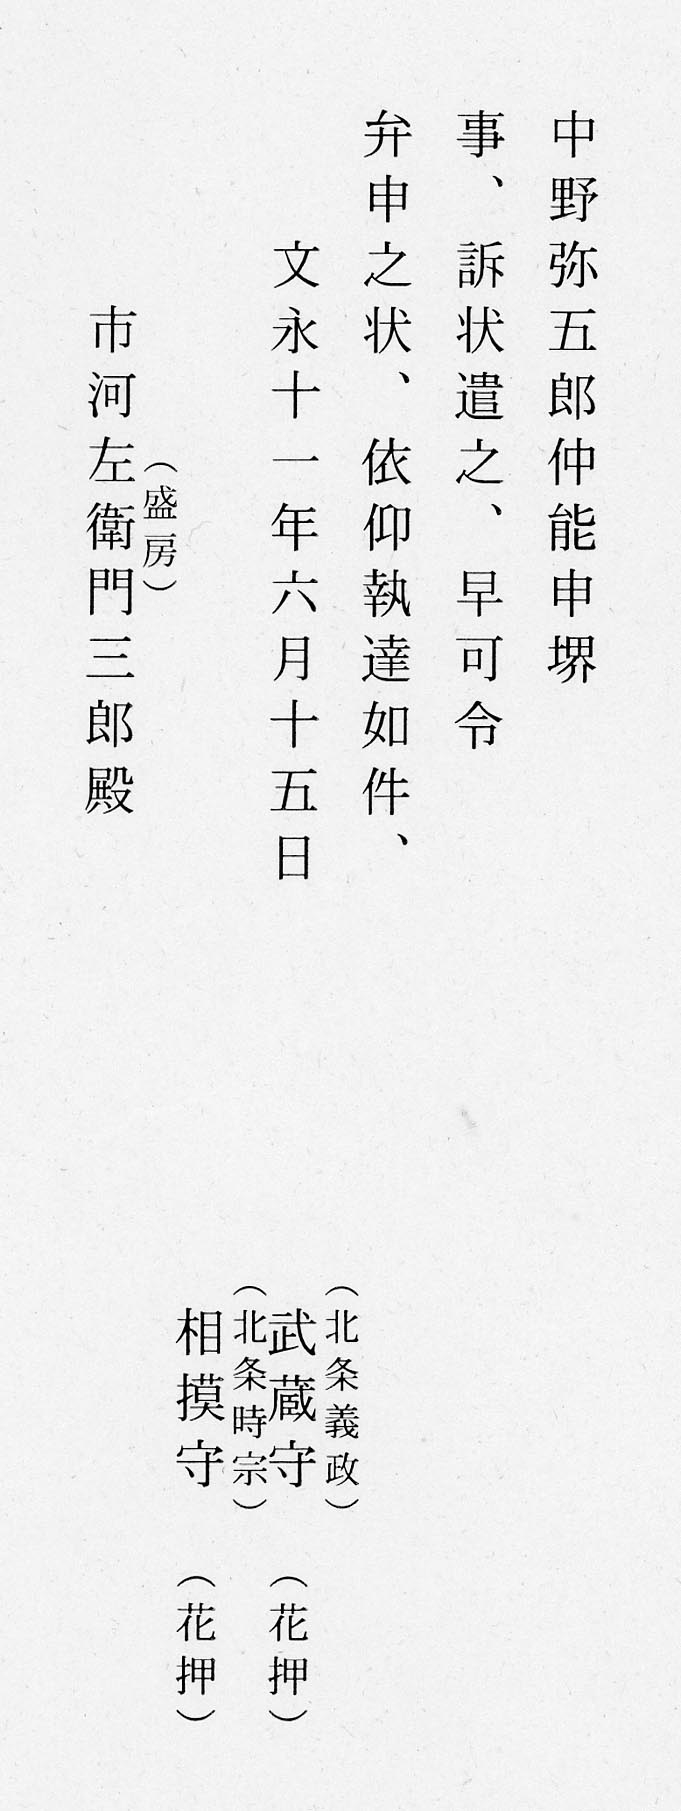 中野弥五郎仲能申堺
事、訴状遣之、早可令
弁申之状、依仰執達如件、
文永十一年六月十五日
（北条義政）
武蔵守（花押）
（北条時宗）
相摸守（花押）
（盛房）
市河左衛門三郎殿